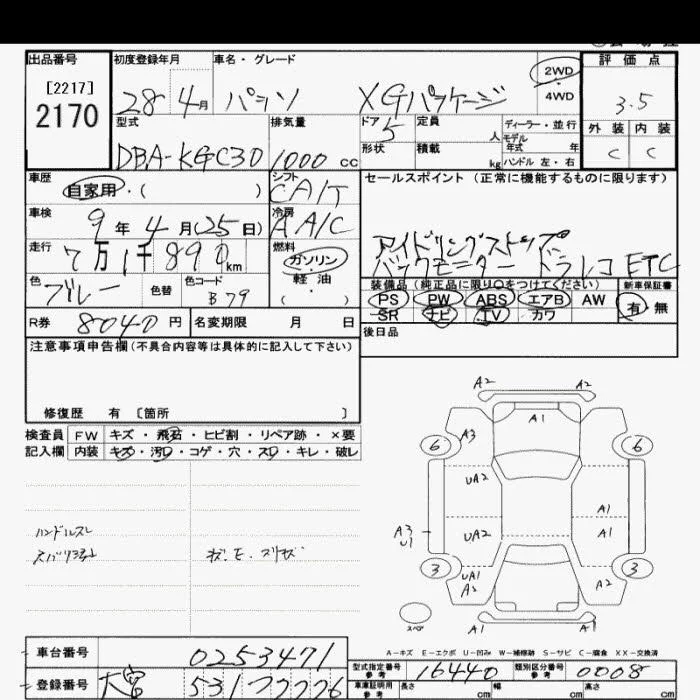 出品番号 初度登録年月 車名・グレード 2WD 評価点
[2217]
2170 28 4月 パッソ XGパッケージ 4WD 3.5
型式 排気量 ドア 定員 人 ディーラー・並行 外装 内装
モデル年式 年
DBA-KGC30 1000 cc 5 形状 積載 kg ハンドル 左・右 C C
車歴 シフト セールスポイント(正常に機能するものに限ります)
自家用・( ) CA/T
車検 冷房
9年4月(25日) AA/C アイドリングストップ
走行 燃料 バックモニター ドラレコ ETC
7万1千890km ガソリン 装備品(純正品に限り○をつけてください) 新車保証書
色 色替 色コード 軽油 PS PW ABS エアB AW 有 無
ブルー B79 ( ) SR ナビ TV カワ
R券 8040円 名変期限 月 日 後日品
注意事項申告欄(不具合内容等は具体的に記入して下さい)
修復歴 有 [箇所 ]
検査員 FW キズ・飛石・ヒビ割・リペア跡・×要
記入欄 内装 キズ・汚レ・コゲ・穴・スレ・キレ・破レ
A2 A2
A1
6 A3 6
UA2
A1
A3 U1 UA2 A1
ハンドルスレ
3 UA1 A2 A2 3
スペア A1 A1
A-キズ E-エクボ U-凹み W-補修跡 S-サビ C-腐食 XX-交換済
車台番号 0253471
型式指定番号 参考 16440 類別区分番号 参考 0008
登録番号 大宮 531
車庫証明用 参考 長さ cm 幅 cm 高さ cm